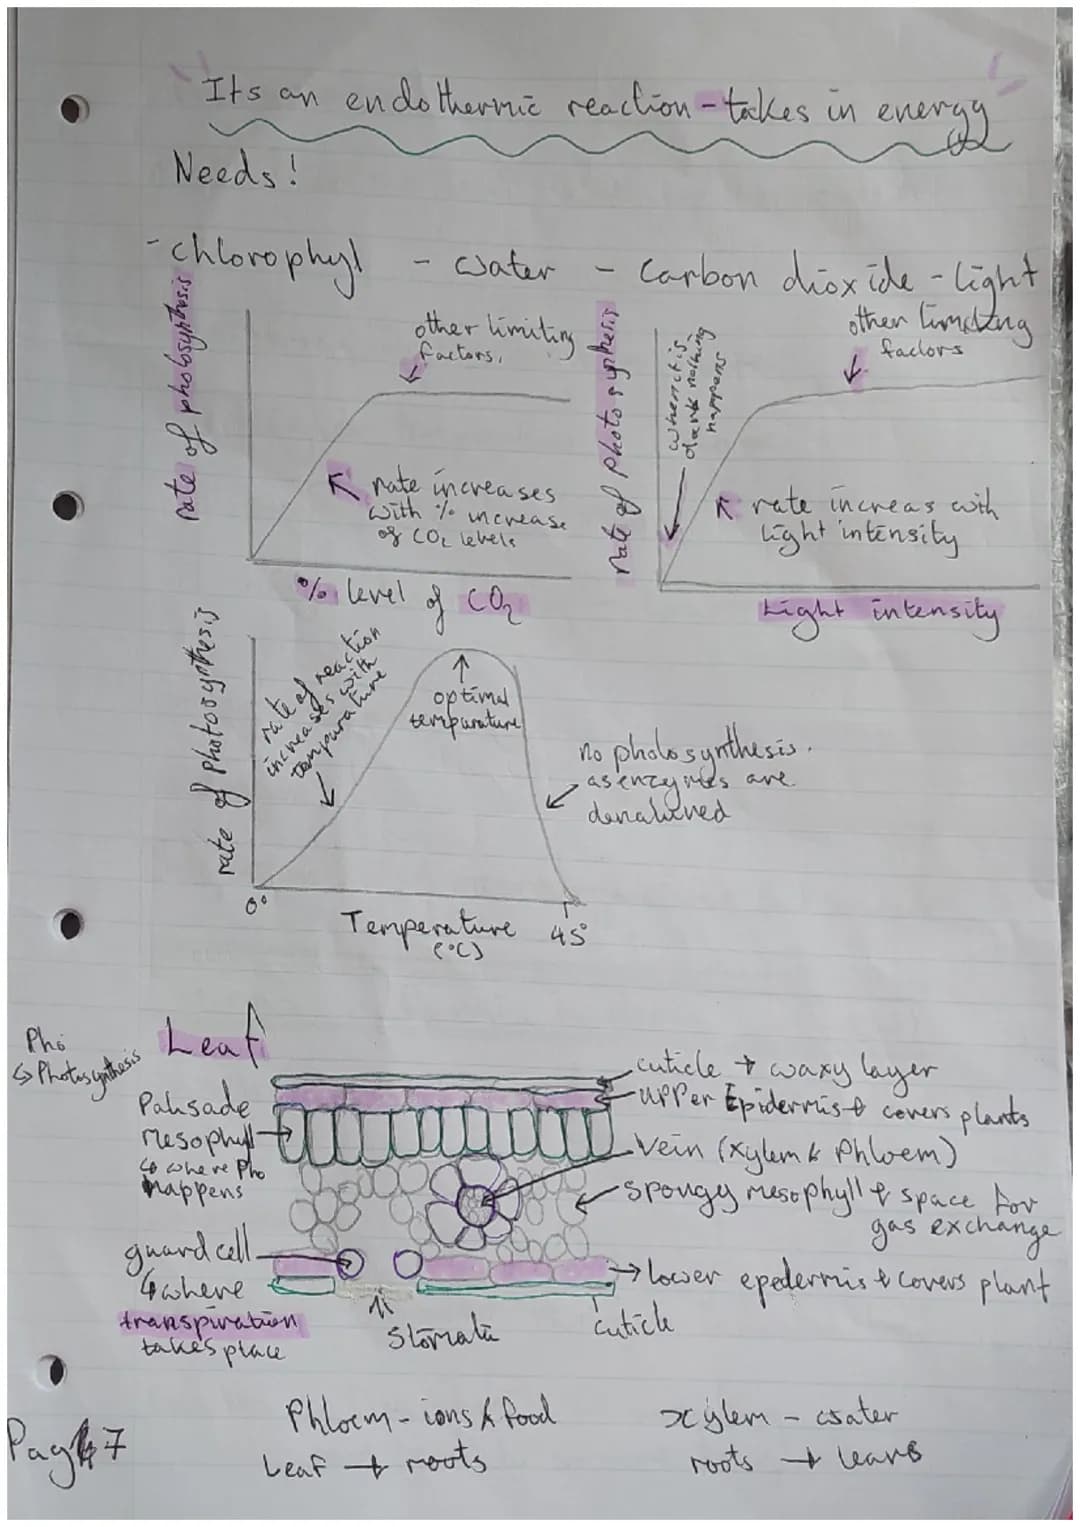 Its an endothermic reaction - takes in energy
Needs!
- chlorophyl - water - Carbon dioxide - light
rate of photosynthesis
other limiting
factors,
rate increases
with % increase
of CO2 levels
% level of CO2
rate of photosynthesis
when it is
dark nothing
happens
other limiting
factors
rate increas with
light intensity
Light intensity
rate of photosynthesis
rate of reaction
increases with
tempurature
optimal
tempurature
no photosynthesis.
as enzymes are
denatured
0°
Temperature
(°C)
45°
Pho
↳ Photosynthesis
Leaf
Palisade
mesophyll
↳ where Pho
happens
guard cell
↳ where
transpiration
takes place
cuticle → waxy layer
upper Epidermis → covers plants
Vein (xylem & Phloem)
spongy mesophyll → space for
gas exchange
lower epedermis → covers plant
Stomata
cuticle
Phloem - ions & food
Leaf → roots
xylem - water
roots → leavs
Page 7